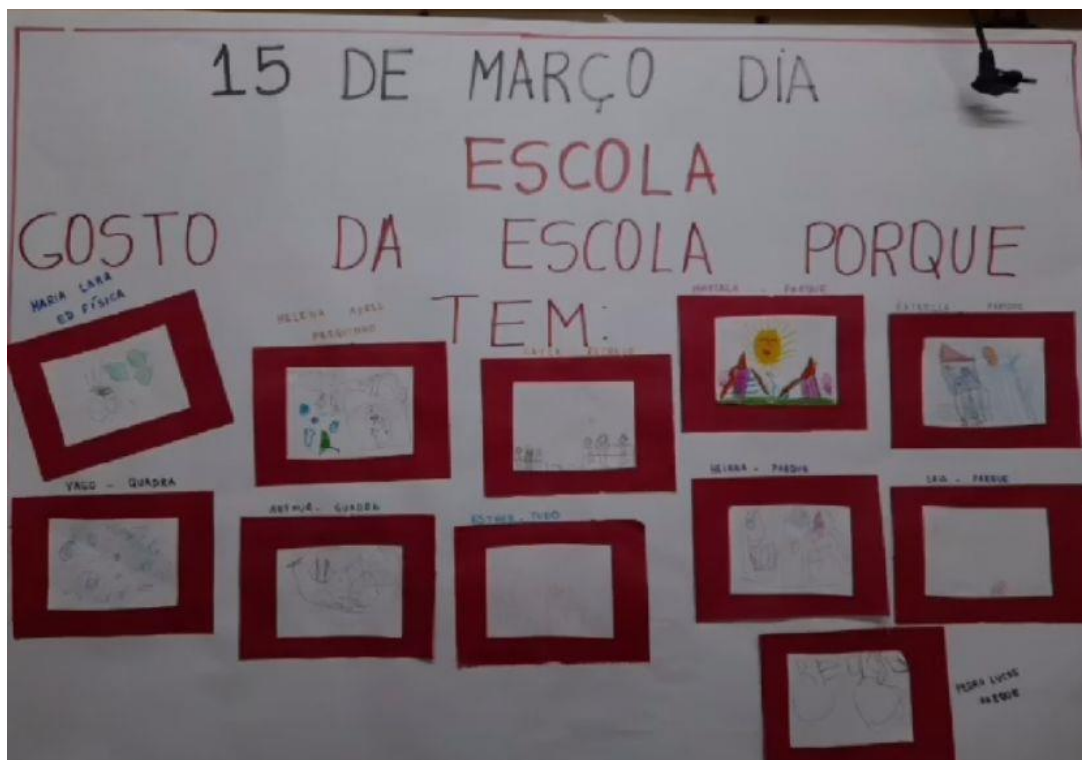 15 DE MARÇO DIA
ESCOLA
GOSTO DA ESCOLA PORQUE
TEM:
MARIA LARA
ED FÍSICA
HELENA
PARQUINHO
PARQUE
PARQUE
YAGO - QUADRA
ARTHUR - QUADRA
ESTHER - TUDO
HELENA - PARQUE
PARQUE
PEDRO LUCAS
PARQUE